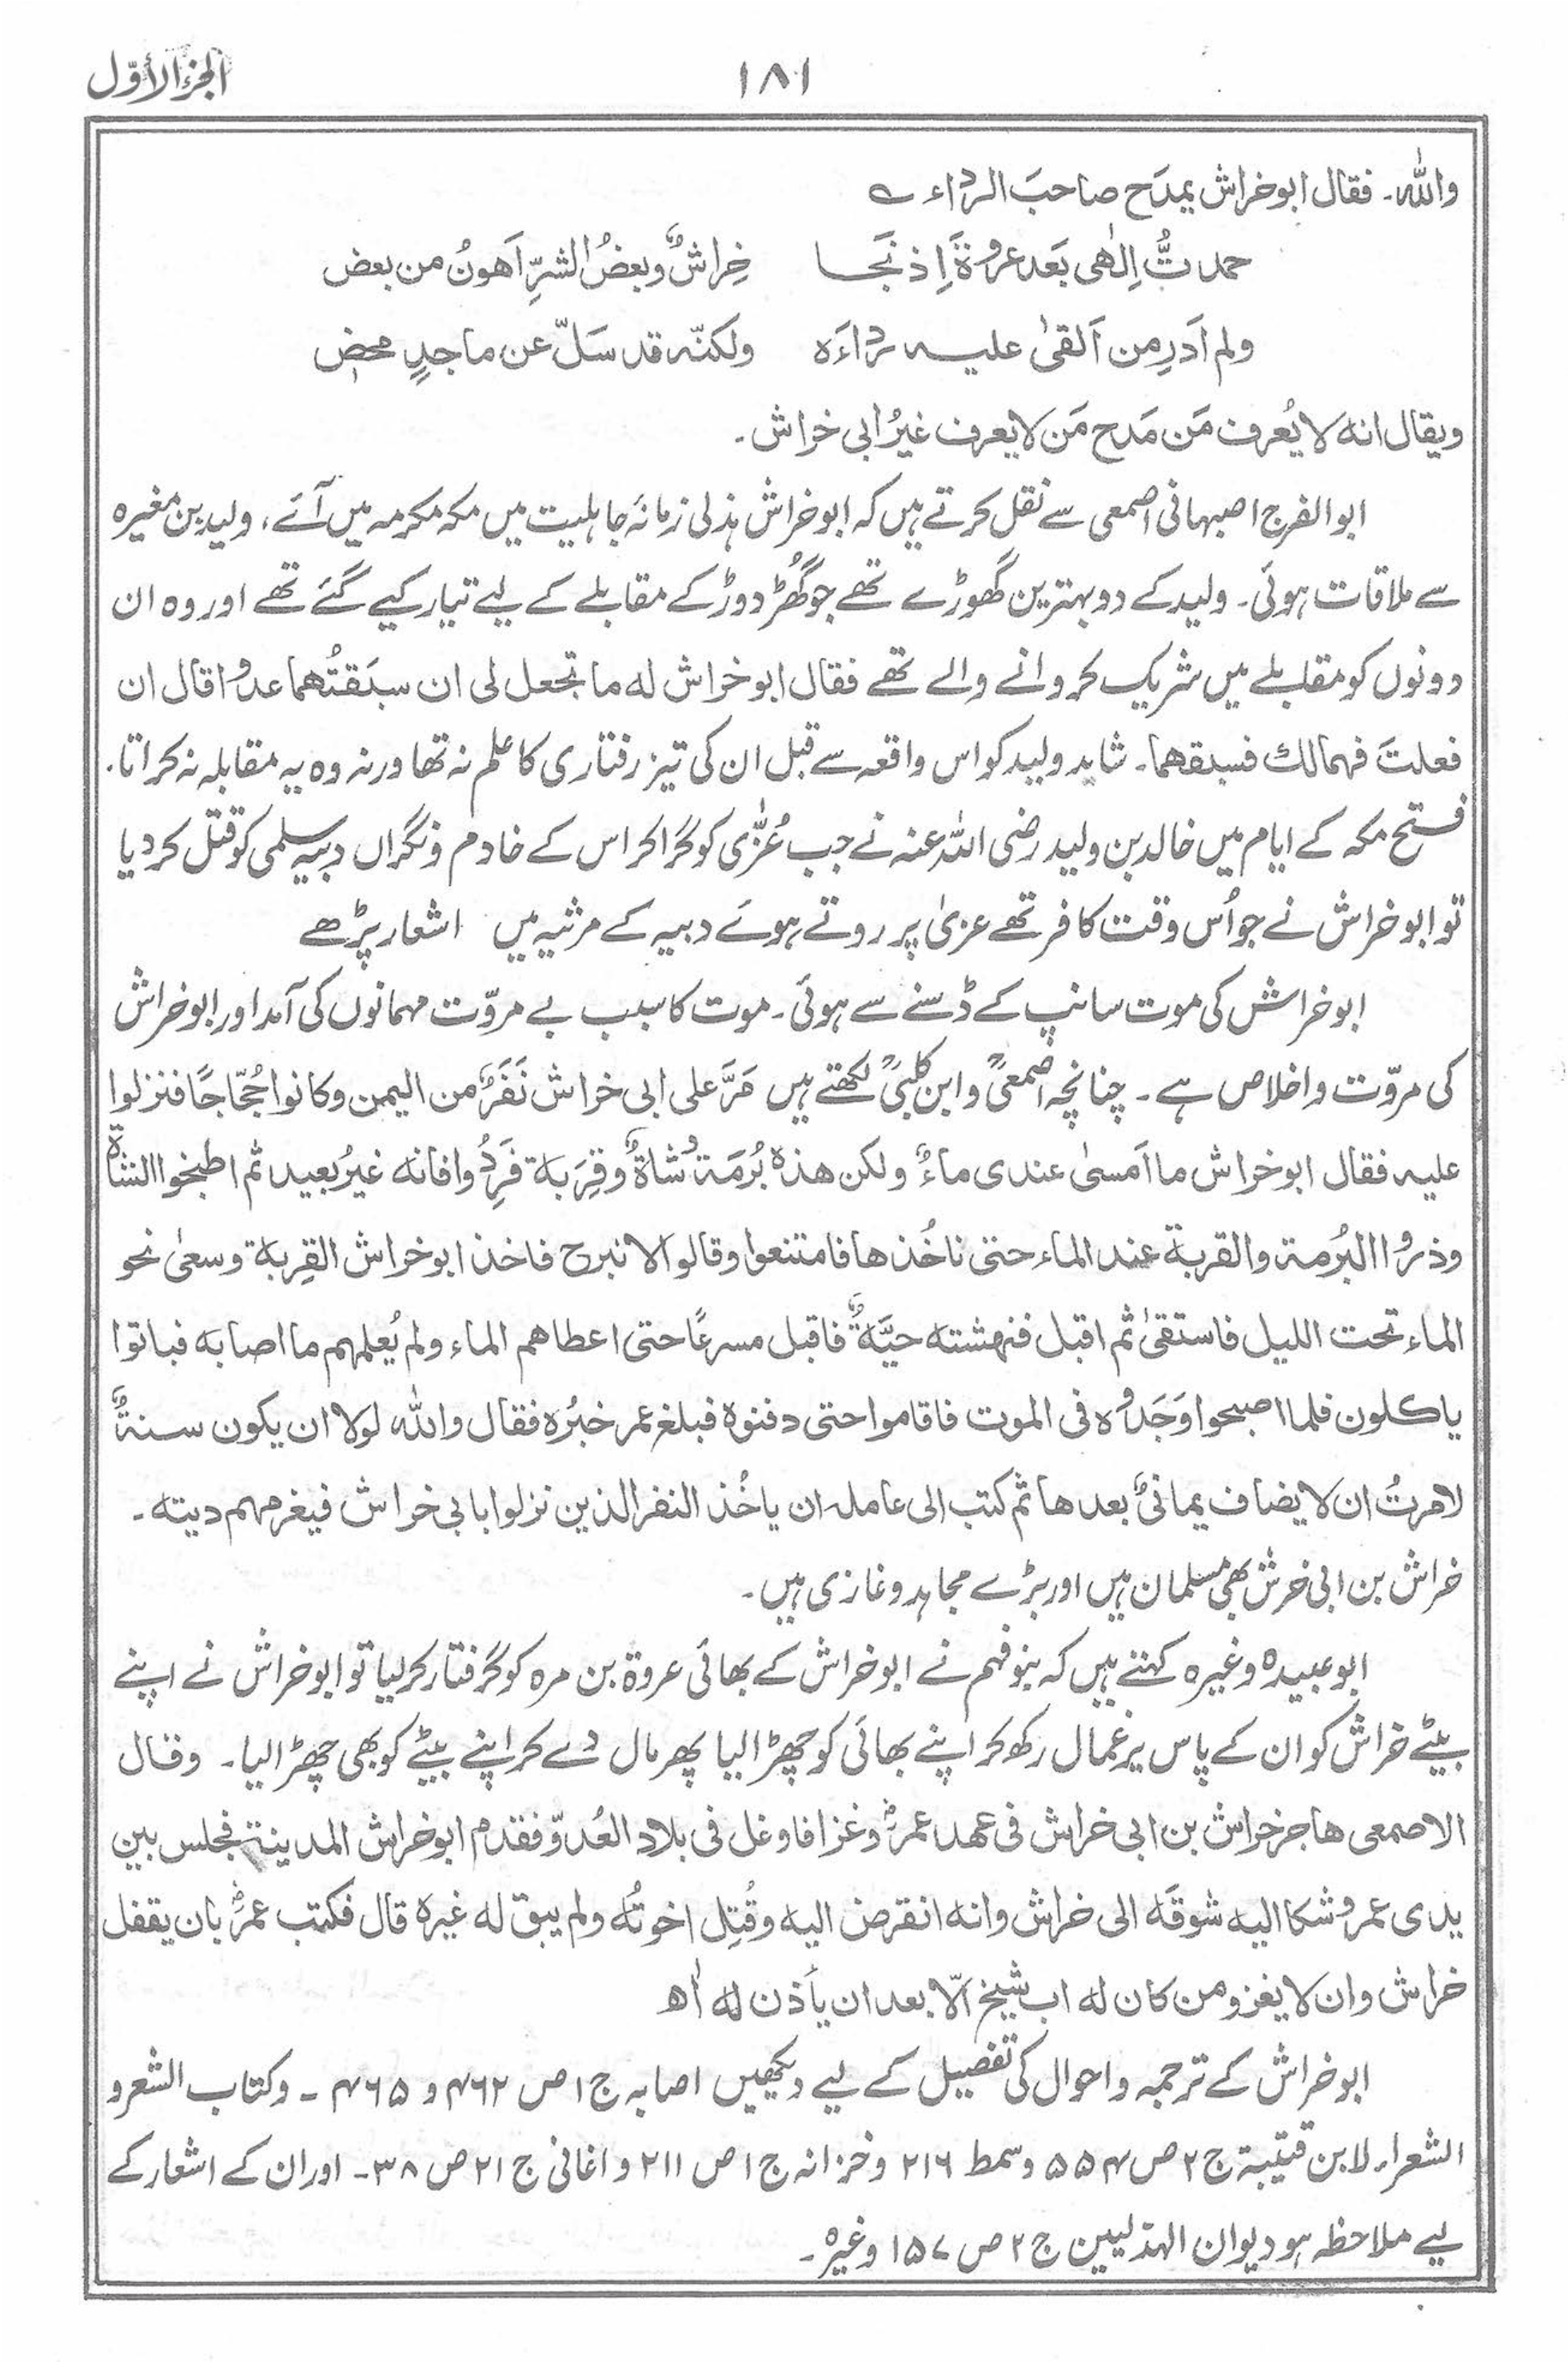 الجزء الأوّل
١٨١
واللہ۔ فقال ابوخراش یمدَح صاحبَ الرداء ے
حمدتُّ اِلٰھی بَعد عروۃَ اِذ نَجَا خِراشٌ وبعضُ الشرِّ اَھونُ من بعض
ولم اَدرِ من اَلقیٰ علیہ رداءَہ ولکنّہ قد سَلّ عن ماجدٍ محضِ
ویقال انہ لا یُعرف مَن مَدح مَن لا یعرف غیرُ ابی خراش۔
ابوالفرج اصبہانی اصمعی سے نقل کرتے ہیں کہ ابوخراش ہذلی زمانۂ جاہلیت میں مکہ مکرمہ میں آئے، ولید بن مغیرہ
سے ملاقات ہوئی۔ ولید کے دو بہترین گھوڑے تھے جو گھُڑ دوڑ کے مقابلے کے لیے تیار کیے گئے تھے اور وہ ان
دونوں کو مقابلے میں شریک کروانے والے تھے فقال ابوخراش لہ ما تجعل لی ان سبَقتُھما عدوًا قال ان
فعلتَ فہما لک فسبقھما۔ شاید ولید کو اس واقعہ سے قبل ان کی تیز رفتاری کا علم نہ تھا ورنہ وہ یہ مقابلہ نہ کراتا.
فتح مکہ کے ایام میں خالد بن ولید رضی اللہ عنہ نے جب عُزّٰی کو گرا کر اس کے خادم و نگراں دبیہ سلمی کو قتل کر دیا
تو ابوخراش نے جو اُس وقت کافر تھے عزیٰ پر روتے ہوئے دبیہ کے مرثیہ میں اشعار پڑھے
ابوخراش کی موت سانپ کے ڈسنے سے ہوئی۔ موت کا سبب بے مروّت مہمانوں کی آمد اور ابوخراش
کی مروّت و اخلاص ہے۔ چنانچہ اصمعیؒ و ابن کلبیؒ لکھتے ہیں مَرَّ علی ابی خراش نَفَرٌ من الیمن وکانوا حُجّاجًا فنزلوا
علیہ فقال ابوخراش ما اَمسیٰ عندی ماءٌ ولکن ھذہ بُرمَۃٌ وشاۃٌ وقِربَۃ فَرِدُوا فانہ غیرُ بعید ثم اطبخوا الشاۃَ
وذروا البُرمۃ والقربۃ عند الماء حتی ناخُذھا فامتنعوا وقالوا لا نبرح فاخذ ابوخراش القِربۃ وسعیٰ نحو
الماء تحت اللیل فاستقیٰ ثم اقبل فنھشتہ حیَّۃٌ فاقبل مسرعًا حتی اعطاھم الماء ولم یُعلمہم ما اصابہ فباتوا
یاکلون فلما اصبحوا وَجَدُوہ فی الموت فاقاموا حتی دفنوہ فبلغ عمر خبرُہ فقال واللہ لولا ان یکون سنۃٌ
لامرتُ ان لا یضاف یمانیٌ بعدھا ثم کتب الی عاملہ ان یاخُذ النفر الذین نزلوا بابی خراش فیغرمہم دیتہ۔
خراش بن ابی خرش بھی مسلمان ہیں اور بڑے مجاہد و غازی ہیں۔
ابوعبیدہ وغیرہ کہتے ہیں کہ بنو فہم نے ابوخراش کے بھائی عروۃ بن مرہ کو گرفتار کر لیا تو ابوخراش نے اپنے
بیٹے خراش کو ان کے پاس یرغمال رکھ کر اپنے بھائی کو چھڑا لیا پھر مال دے کر اپنے بیٹے کو بھی چھڑا لیا۔ وقال
الاصمعی ھاجر خراش بن ابی خراش فی عھد عمرؓ وغزا فاوغل فی بلاد العُدوّ فقدم ابوخراش المدینۃ فجلس بین
یدی عمرؓ وشکا الیہ شوقَہ الی خراش وانہ انقرض الیہ وقُتِل اخوتُہ ولم یبق لہ غیرہ قال فکتب عمرؓ بان یقفل
خراش وان لا یغزو من کان لہ اب شیخ اِلّا بعد ان یأذن لہ اٰھ
ابوخراش کے ترجمہ و احوال کی تفصیل کے لیے دیکھیں اصابہ ج ١ ص ۴۶۲ و ۴۶۵ ۔ وکتاب الشعر و
الشعراء لابن قتیبۃ ج ۲ ص ۵۵۴ وسمط ۲۱۶ وخزانہ ج ۱ ص ۲۱۱ و اغانی ج ۲۱ ص ۳۸۔ اور ان کے اشعار کے
لیے ملاحظہ ہو دیوان الہذلیین ج ۲ ص ۱۵۷ وغیرہ۔